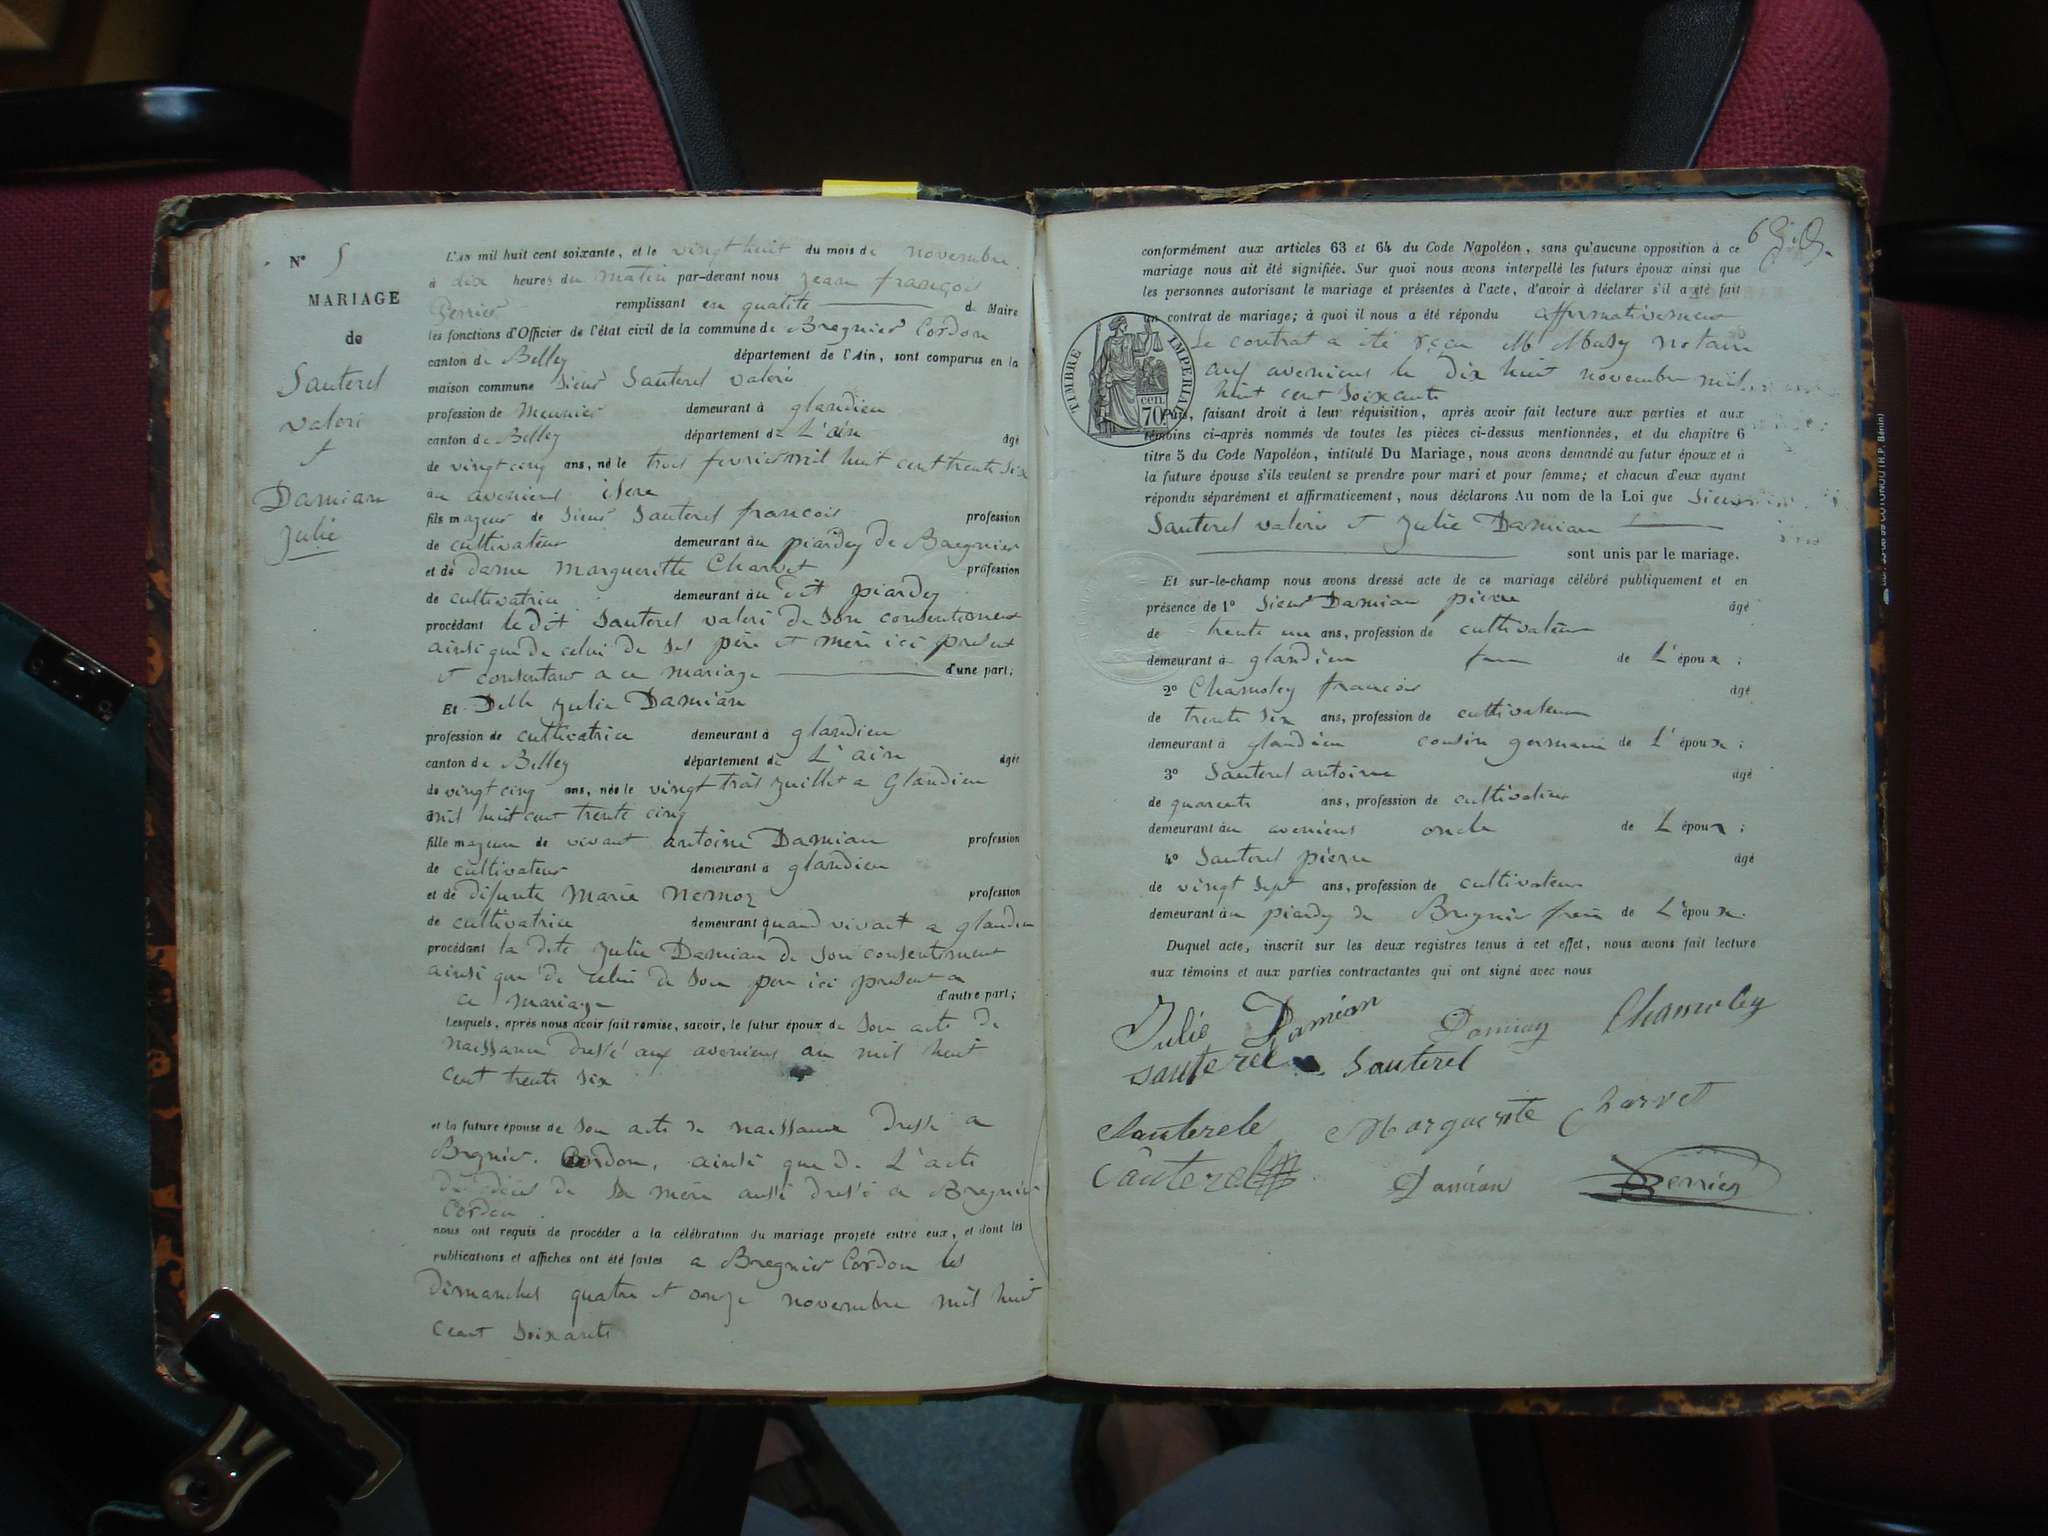 Nº 5
MARIAGE
de
Sauterel
valeri
et
Damian
Julie
L'an mil huit cent soixante, et le vingt huit du mois de novembre
à dix heures du matin par-devant nous jean françois
Perrier remplissant en qualité de Maire
les fonctions d'Officier de l'état civil de la commune de Bregnier Cordon
canton de Belley département de l'Ain, sont comparus en la
maison commune Sieur Sauterel valeri
profession de Meunier demeurant à glandieu
canton de Belley département de L'ain âgé
de vingt cinq ans, né le trois fevrier mil huit cent trente six
au avenieres isere
fils majeur de Sieur Sauterel francois profession
de cultivateur demeurant au piardey de Bregnier
et de dame Margueritte Charvet profession
de cultivatrice demeurant au dit piardey
procédant le dit Sauterel valeri de son consentement
ainsi que de celui de ses père et mère ici present
et consentant a ce mariage d'une part;
Et Delle Julie Damian
profession de cultivatrice demeurant à glandieu
canton de Belley département de L'ain âgée
de vingt cinq ans, née le vingt trois juillet a Glandieu
mil huit cent trente cinq
fille majeure de vivant antoine Damian profession
de cultivateur demeurant à glandieu
et de difunte Marie Nemoz profession
de cultivatrice demeurant quand vivait a glandieu
procédant la dite Julie Damian de son consentement
ainsi que de celui de son pere ici present a
ce mariage d'autre part;
Lesquels, après nous avoir fait remise, savoir, le futur époux de son acte de
naissance dressé aux avenieres an mil huit
cent trente six
et la future épouse de son acte de naissance dressé a
Bregnier. Cordon, ainsi que de L'acte
de décès de sa mère aussi dressé a Bregnier
Cordon
nous ont requis de procéder à la célébration du mariage projeté entre eux, et dont les
publications et affiches ont été faites a Bregnier Cordon les
dimanches quatre et onze novembre mil huit
ceant soixante
conformément aux articles 63 et 64 du Code Napoléon, sans qu'aucune opposition à ce
mariage nous ait été signifiée. Sur quoi nous avons interpellé les futurs époux ainsi que
les personnes autorisant le mariage et présentes à l'acte, d'avoir à déclarer s'il a été fait
un contrat de mariage; à quoi il nous a été répondu affirmativement
Le contrat a été reçu M Mady notaire
aux avenieres le dix huit novembre mil
huit cent soixante
TIMBRE IMPERIAL
70 cen.
Puis, faisant droit à leur réquisition, après avoir fait lecture aux parties et aux
témoins ci-après nommés de toutes les pièces ci-dessus mentionnées, et du chapitre 6
titre 5 du Code Napoléon, intitulé Du Mariage, nous avons demandé au futur époux et à
la future épouse s'ils veulent se prendre pour mari et pour femme; et chacun d'eux ayant
répondu séparément et affirmativement, nous déclarons Au nom de la Loi que Sieur
Sauterel valerie et Julie Damian
sont unis par le mariage.
Et sur-le-champ nous avons dressé acte de ce mariage célébré publiquement et en
présence de 1º Sieur Damian pierre âgé
de trente un ans, profession de cultivateur
demeurant à glandieu de L'épouse;
2º Chamoley francois âgé
de trente six ans, profession de cultivateur
demeurant à glandieu cousin germain de L'épouse;
3º Sauterel antoine âgé
de quarente ans, profession de cultivateur
demeurant au avenieres oncle de L'époux;
4º Sauterel pierre âgé
de vingt sept ans, profession de cultivateur
demeurant au piardey de Bregnier frere de L'époux.
Duquel acte, inscrit sur les deux registres tenus à cet effet, nous avons fait lecture
aux témoins et aux parties contractantes qui ont signé avec nous
Julie Damian Damian Chamoley
Sauterel Sauterel
Sauterele Marguerite Charvet
Sauterel Damian Perrier